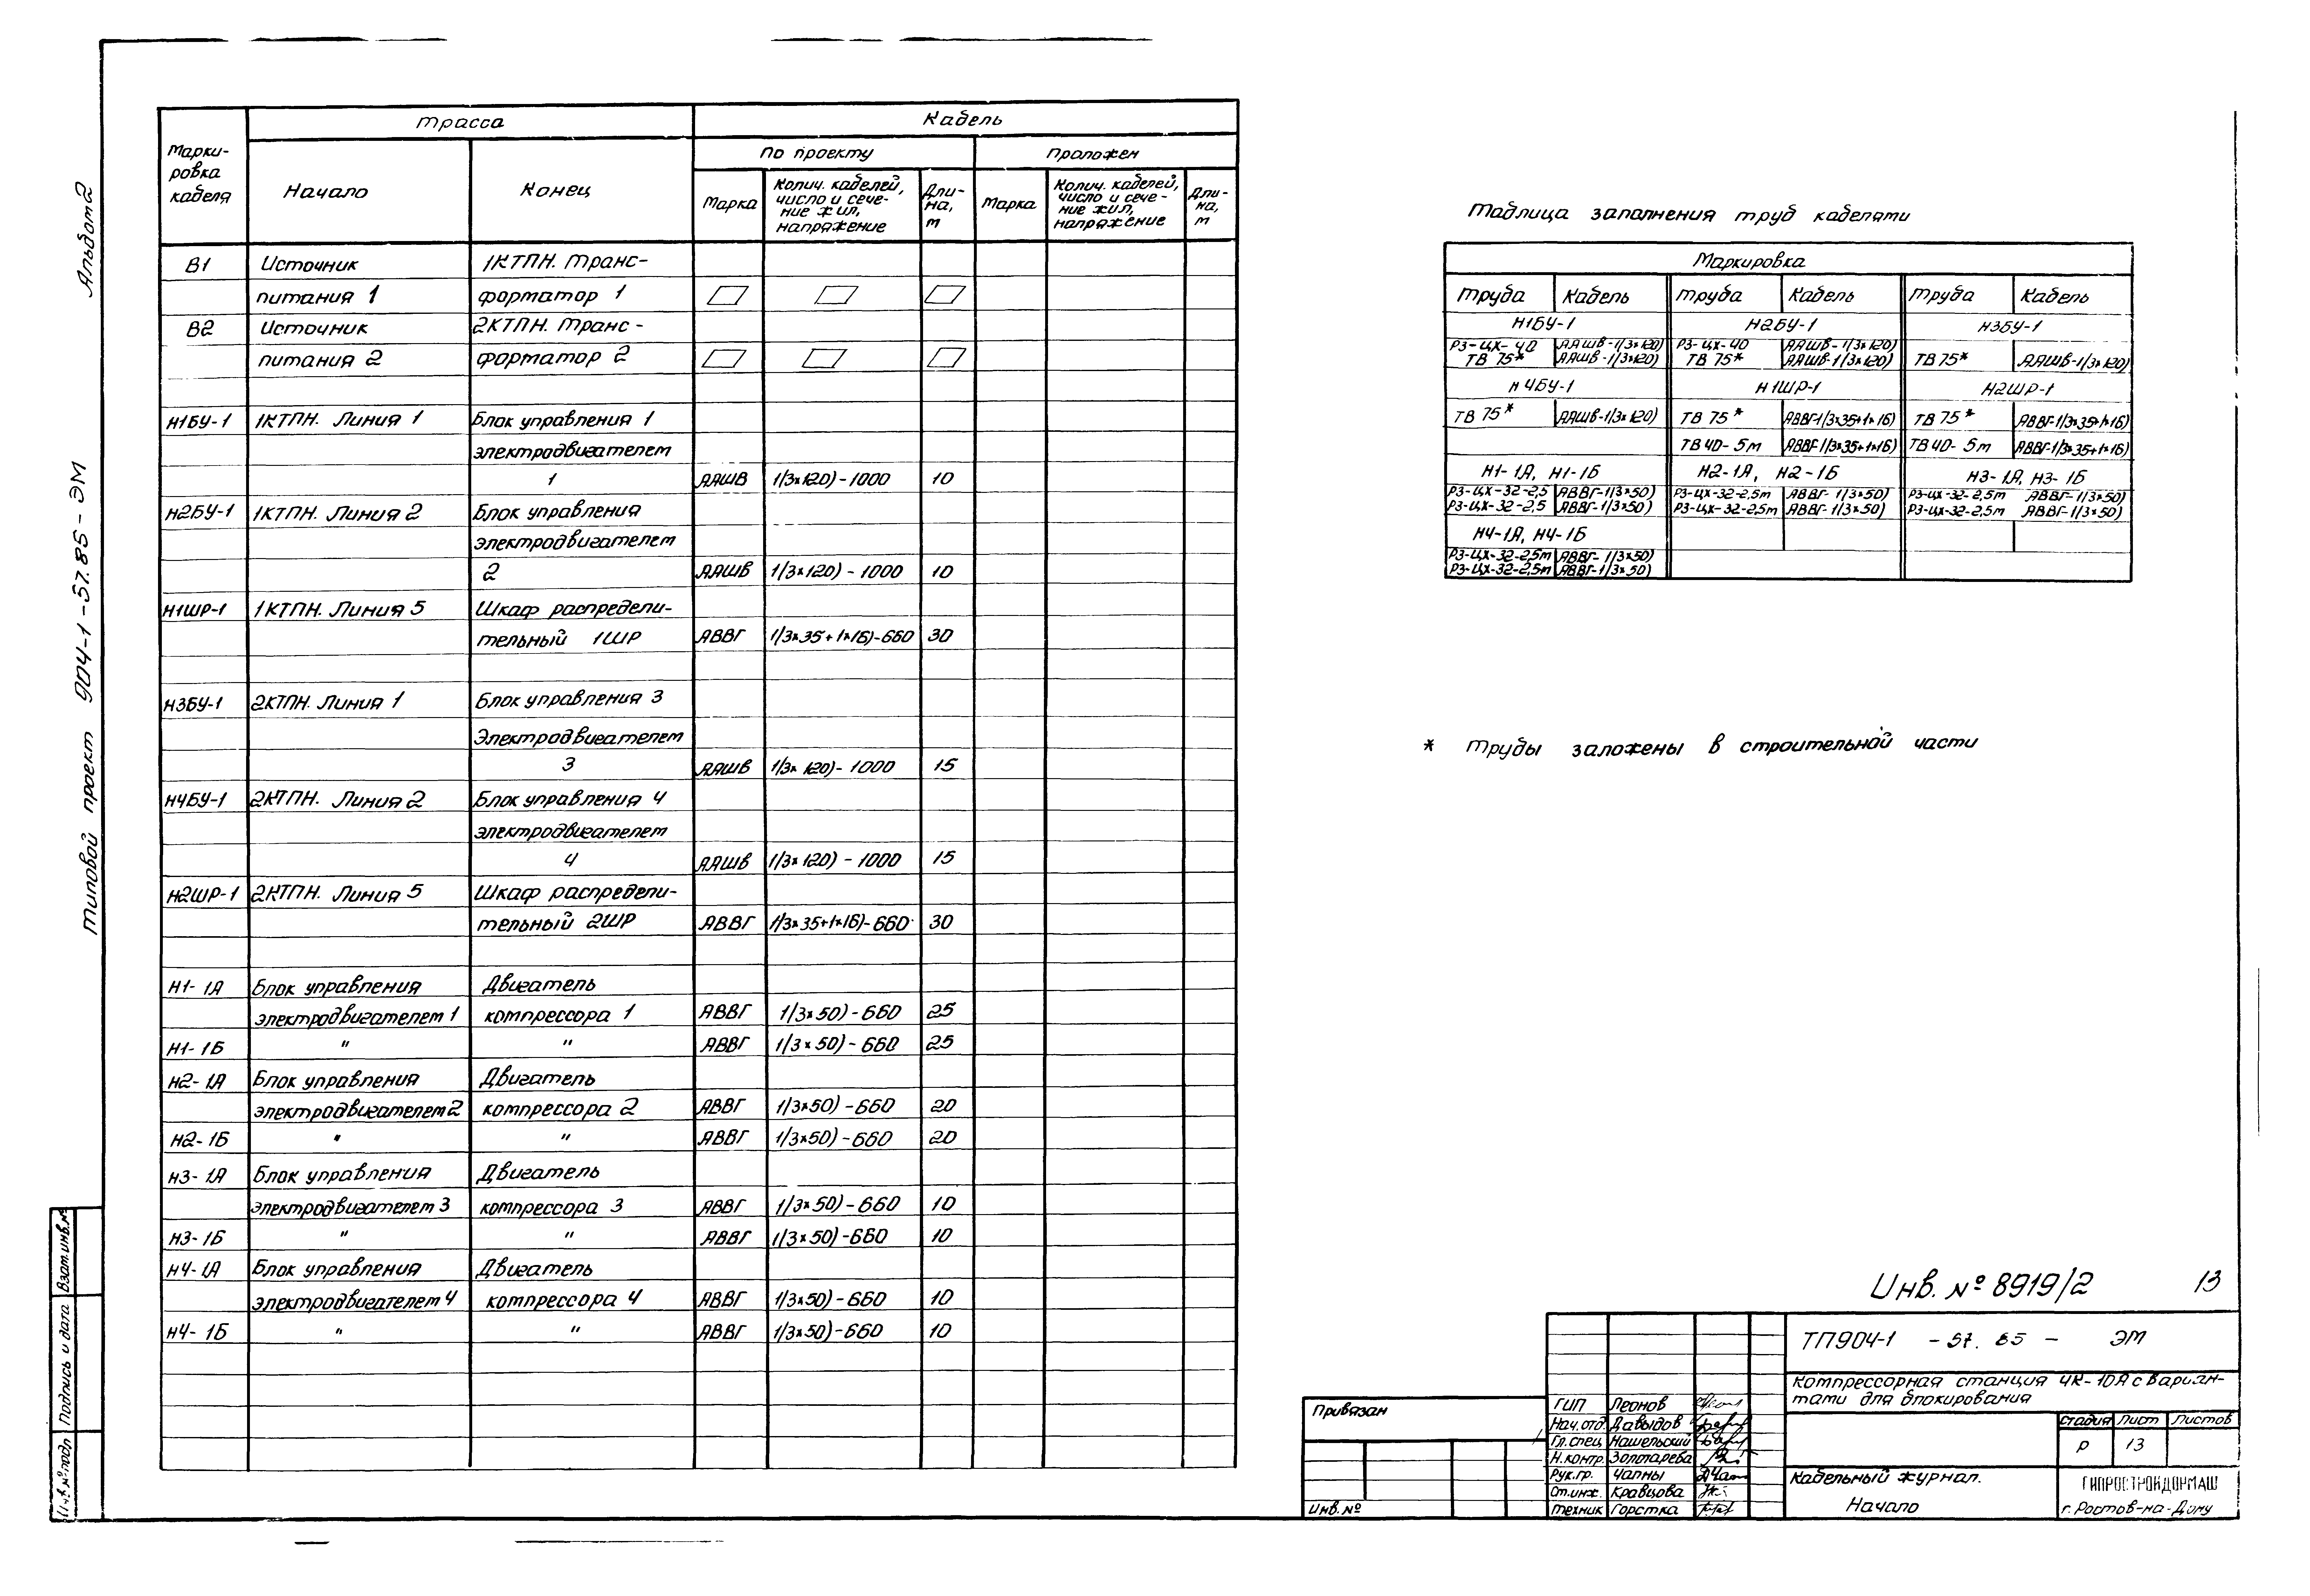 Альбом 2
Типовой проект 904-1-57.85-ЭМ
Взам.инв.№
Подпись и дата
Инв.№ подл
Марки-
ровка
кабеля
Трасса
Кабель
Начало
Конец
По проекту
Проложен
Марка
Колич. кабелей,
число и сече-
ние жил,
напряжение
Дли-
на,
м
Марка
Колич. кабелей,
число и сече-
ние жил,
напряжение
Дли-
на,
м
В1 Источник 1КТПН. Транс-
питания 1 форматор 1
В2 Источник 2КТПН. Транс-
питания 2 форматор 2
Н1БУ-1 1КТПН. Линия 1 Блок управления 1
электродвигателем
1 ААШВ 1(3×120)-1000 10
Н2БУ-1 1КТПН. Линия 2 Блок управления
электродвигателем
2 ААШВ 1(3×120)-1000 10
Н1ШР-1 1КТПН. Линия 5 Шкаф распредели-
тельный 1ШР АВВГ 1(3×35+1×16)-660 30
Н3БУ-1 2КТПН. Линия 1 Блок управления 3
Электродвигателем
3 ААШВ 1(3×120)-1000 15
Н4БУ-1 2КТПН. Линия 2 Блок управления 4
электродвигателем
4 ААШВ 1(3×120)-1000 15
Н2ШР-1 2КТПН. Линия 5 Шкаф распредели-
тельный 2ШР АВВГ 1(3×35+1×16)-660 30
Н1-1А Блок управления Двигатель
электродвигателем 1 компрессора 1 АВВГ 1(3×50)-660 25
Н1-1Б " " АВВГ 1(3×50)-660 25
Н2-1А Блок управления Двигатель
электродвигателем 2 компрессора 2 АВВГ 1(3×50)-660 20
Н2-1Б " " АВВГ 1(3×50)-660 20
Н3-1А Блок управления Двигатель
электродвигателем 3 компрессора 3 АВВГ 1(3×50)-660 10
Н3-1Б " " АВВГ 1(3×50)-660 10
Н4-1А Блок управления Двигатель
электродвигателем 4 компрессора 4 АВВГ 1(3×50)-660 10
Н4-1Б " " АВВГ 1(3×50)-660 10
Таблица заполнения труб кабелями
Маркировка
Труба Кабель Труба Кабель Труба Кабель
Н1БУ-1 Н2БУ-1 Н3БУ-1
РЗ-ЦХ-40 ААШВ-1(3×120) РЗ-ЦХ-40 ААШВ-1(3×120)
ТВ 75* ААШВ-1(3×120) ТВ 75* ААШВ-1(3×120) ТВ 75* ААШВ-1(3×120)
Н4БУ-1 Н1ШР-1 Н2ШР-1
ТВ 75* ААШВ-1(3×120) ТВ 75* АВВГ-1(3×35+1×16) ТВ 75* АВВГ-1(3×35+1×16)
ТВ40-5м АВВГ-1(3×35+1×16) ТВ40-5м АВВГ-1(3×35+1×16)
Н1-1А, Н1-1Б Н2-1А, Н2-1Б Н3-1А, Н3-1Б
РЗ-ЦХ-32-2,5 АВВГ-1(3×50) РЗ-ЦХ-32-2,5м АВВГ-1(3×50) РЗ-ЦХ-32-2,5м АВВГ-1(3×50)
РЗ-ЦХ-32-2,5 АВВГ-1(3×50) РЗ-ЦХ-32-2,5м АВВГ-1(3×50) РЗ-ЦХ-32-2,5м АВВГ-1(3×50)
Н4-1А, Н4-1Б
РЗ-ЦХ-32-2,5м АВВГ-1(3×50)
РЗ-ЦХ-32-2,5м АВВГ-1(3×50)
* Трубы заложены в строительной части
Инв. № 8919/2 13
ТП904-1 -57.85- ЭМ
Компрессорная станция 4К-10А с вариан-
тами для блокирования
Привязан
Инв.№
ГИП Леонов
Нач.отд Давыдов
Гл.спец Нашельский
Н.контр. Золотарева
Рук.гр. Чапны
Ст.инж. Кравцова
Техник Горстка
Стадия Лист Листов
Р 13
Кабельный журнал.
Начало
ГИПРОСТРОЙДОРМАШ
г.Ростов-на-Дону